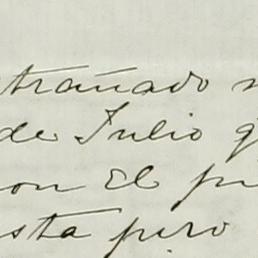 trañado
de Julio q
on El pr
sta pero